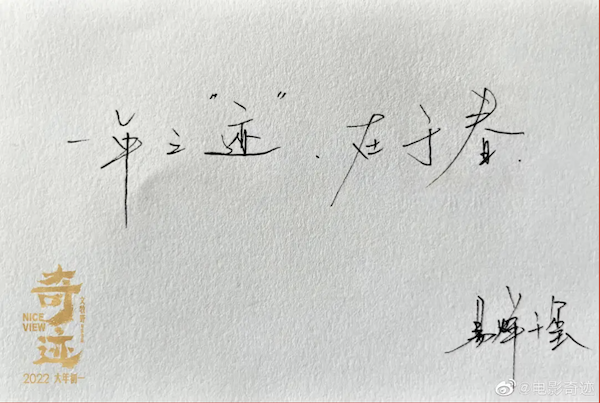 一年之“迹”，在于春.
奇迹
NICE VIEW
文牧野
2022 大年初一
易烊千玺
@电影奇迹